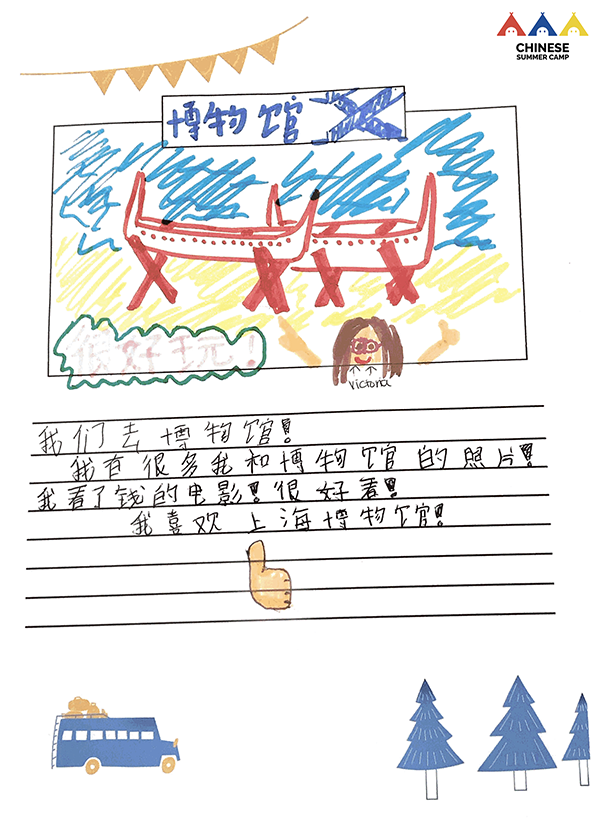 CHINESE
SUMMER CAMP
博物馆
很好玩！
Victoria
我们去博物馆！
我有很多我和博物馆的照片！
我看了钱的电影！很好看！
我喜欢上海博物馆！